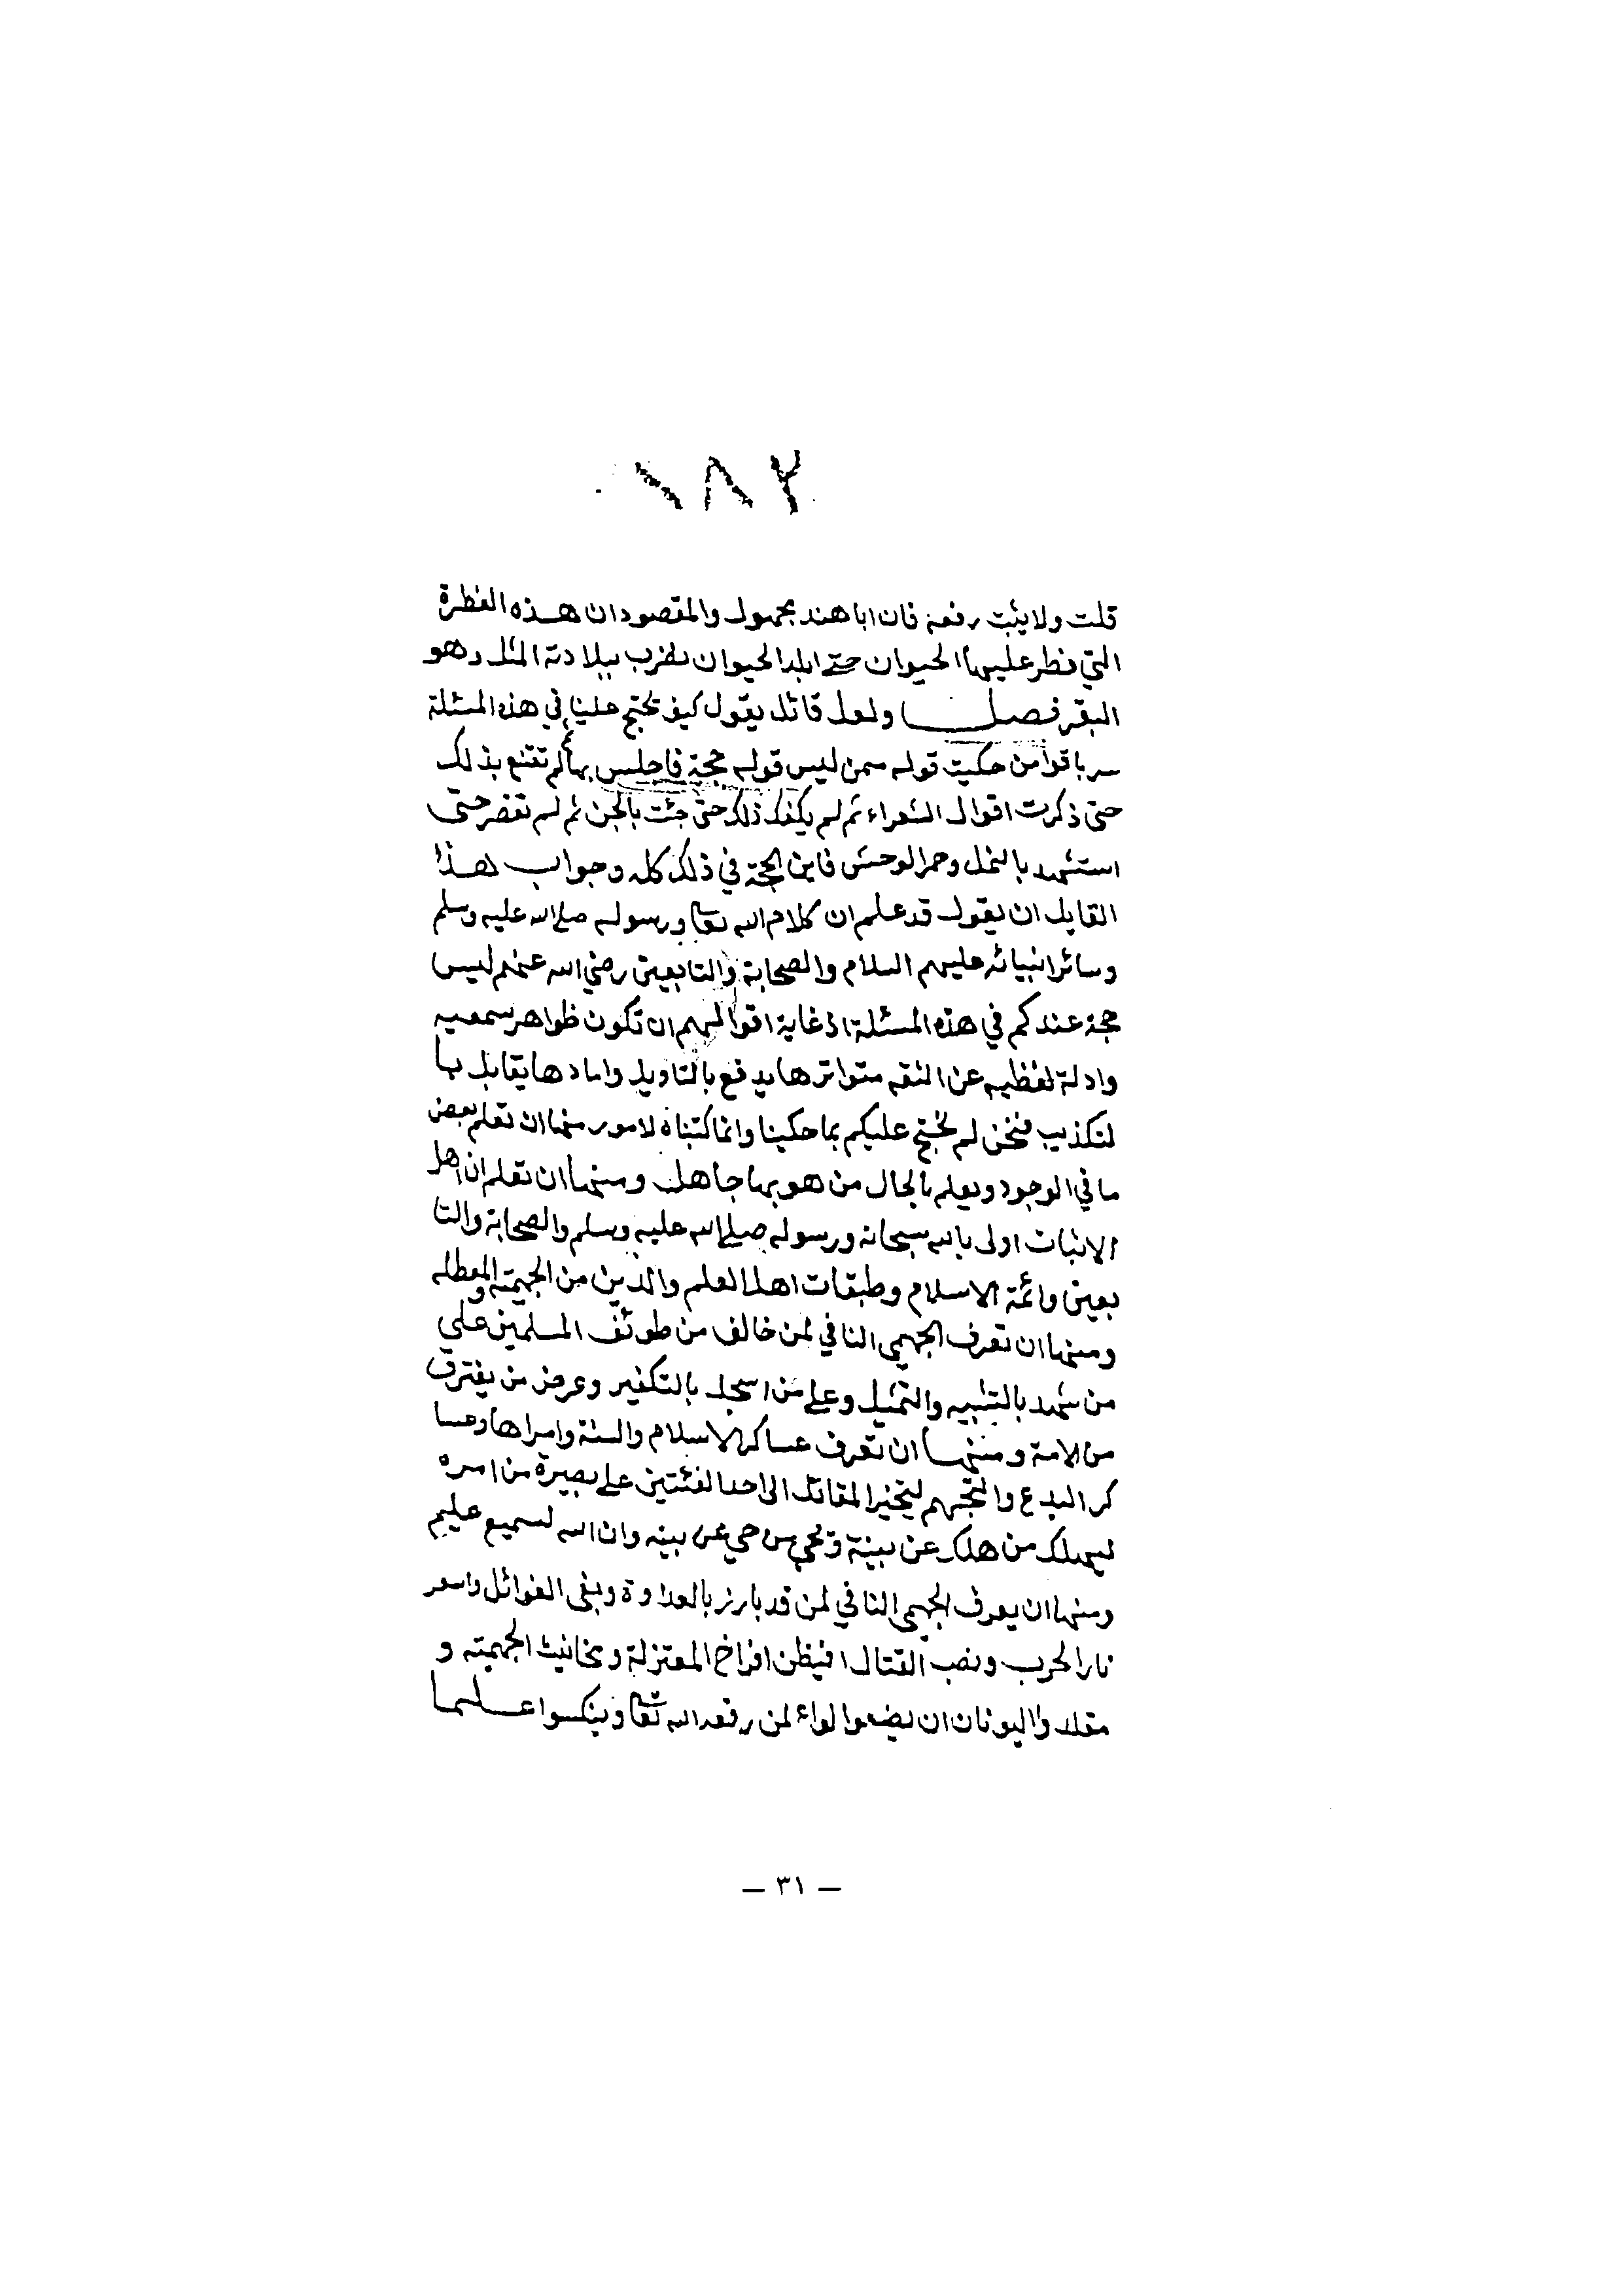 ١٨٢
قلت ولا يثبت رفعه فان ابا هند مجهول والمقصود ان هذه الفطرة
التي فطر عليها الحيوان حتى ابلد الحيوان يضرب ببلادته المثل وهو
البقر فصل ولعل قائل يقول كيف تحتج علينا في هذه المسئلة
باقوال من حكيت قوله ممن ليس قوله حجة فاجلس بها ثم لم تقنع بذلك
حتى ذكرت اقوال الشعراء ثم لم يكفك ذلك حتى جئت بالجن ثم لم تقصر حتى
استشهد بالنمل وحمر الوحش فاين الحجة في ذلك كله وجواب هذا
القايل ان يقول قد علم ان كلام الله تعا ورسوله صلى الله عليه وسلم
وسائر انبيائه عليهم السلام والصحابة والتابعين رضي الله عنهم ليس
حجة عندكم في هذه المسئلة اذ غاية اقوالهم ان تكون ظواهر سمعيه
وادلة لفظيه عن الثقه متواترها يدفع بالتاويل واحادها يقابل با
لتكذيب فنحن لم نحتج عليكم بما حكينا وانما كتبناه لامور منها ان تعلم بعض
ما في الوجود ويعلم بالحال من هو بها جاهل ومنها ان تعلم ان اهل
الاثبات اولى بالله سبحانه ورسوله صلى الله عليه وسلم والصحابة والتا
بعين وائمة الاسلام وطبقات اهل العلم والدين من الجهمية والمعطله
ومنها ان تعرف الجهمي النافي لمن خالف من طوئف المسلمين علي
من شهد بالتشبيه والتمثيل وعلى من اسجل بالتكفير وعرض من يفترق
من الامة ومنها ان تعرف عساكر الاسلام والسنة وامراها وعسا
كر البدع والتجهم ليتحيز المقاتل الى احد الفئتين على بصيرة من امره
ليهلك من هلك عن بينة ويحي من حي عن بينه وان الله لسميع عليم
ومنها ان يعرف الجهمي النافي لمن قد بارز بالعداوة وبغى الغوائل واسعر
نار الحرب ونصب القتال افيظن افراخ المعتزلة ومخانيث الجهمية و
مقلدوا اليونان ان يضعوا لواء لمن رفعه الله تعا وينكسوا علما
— ٣١ —